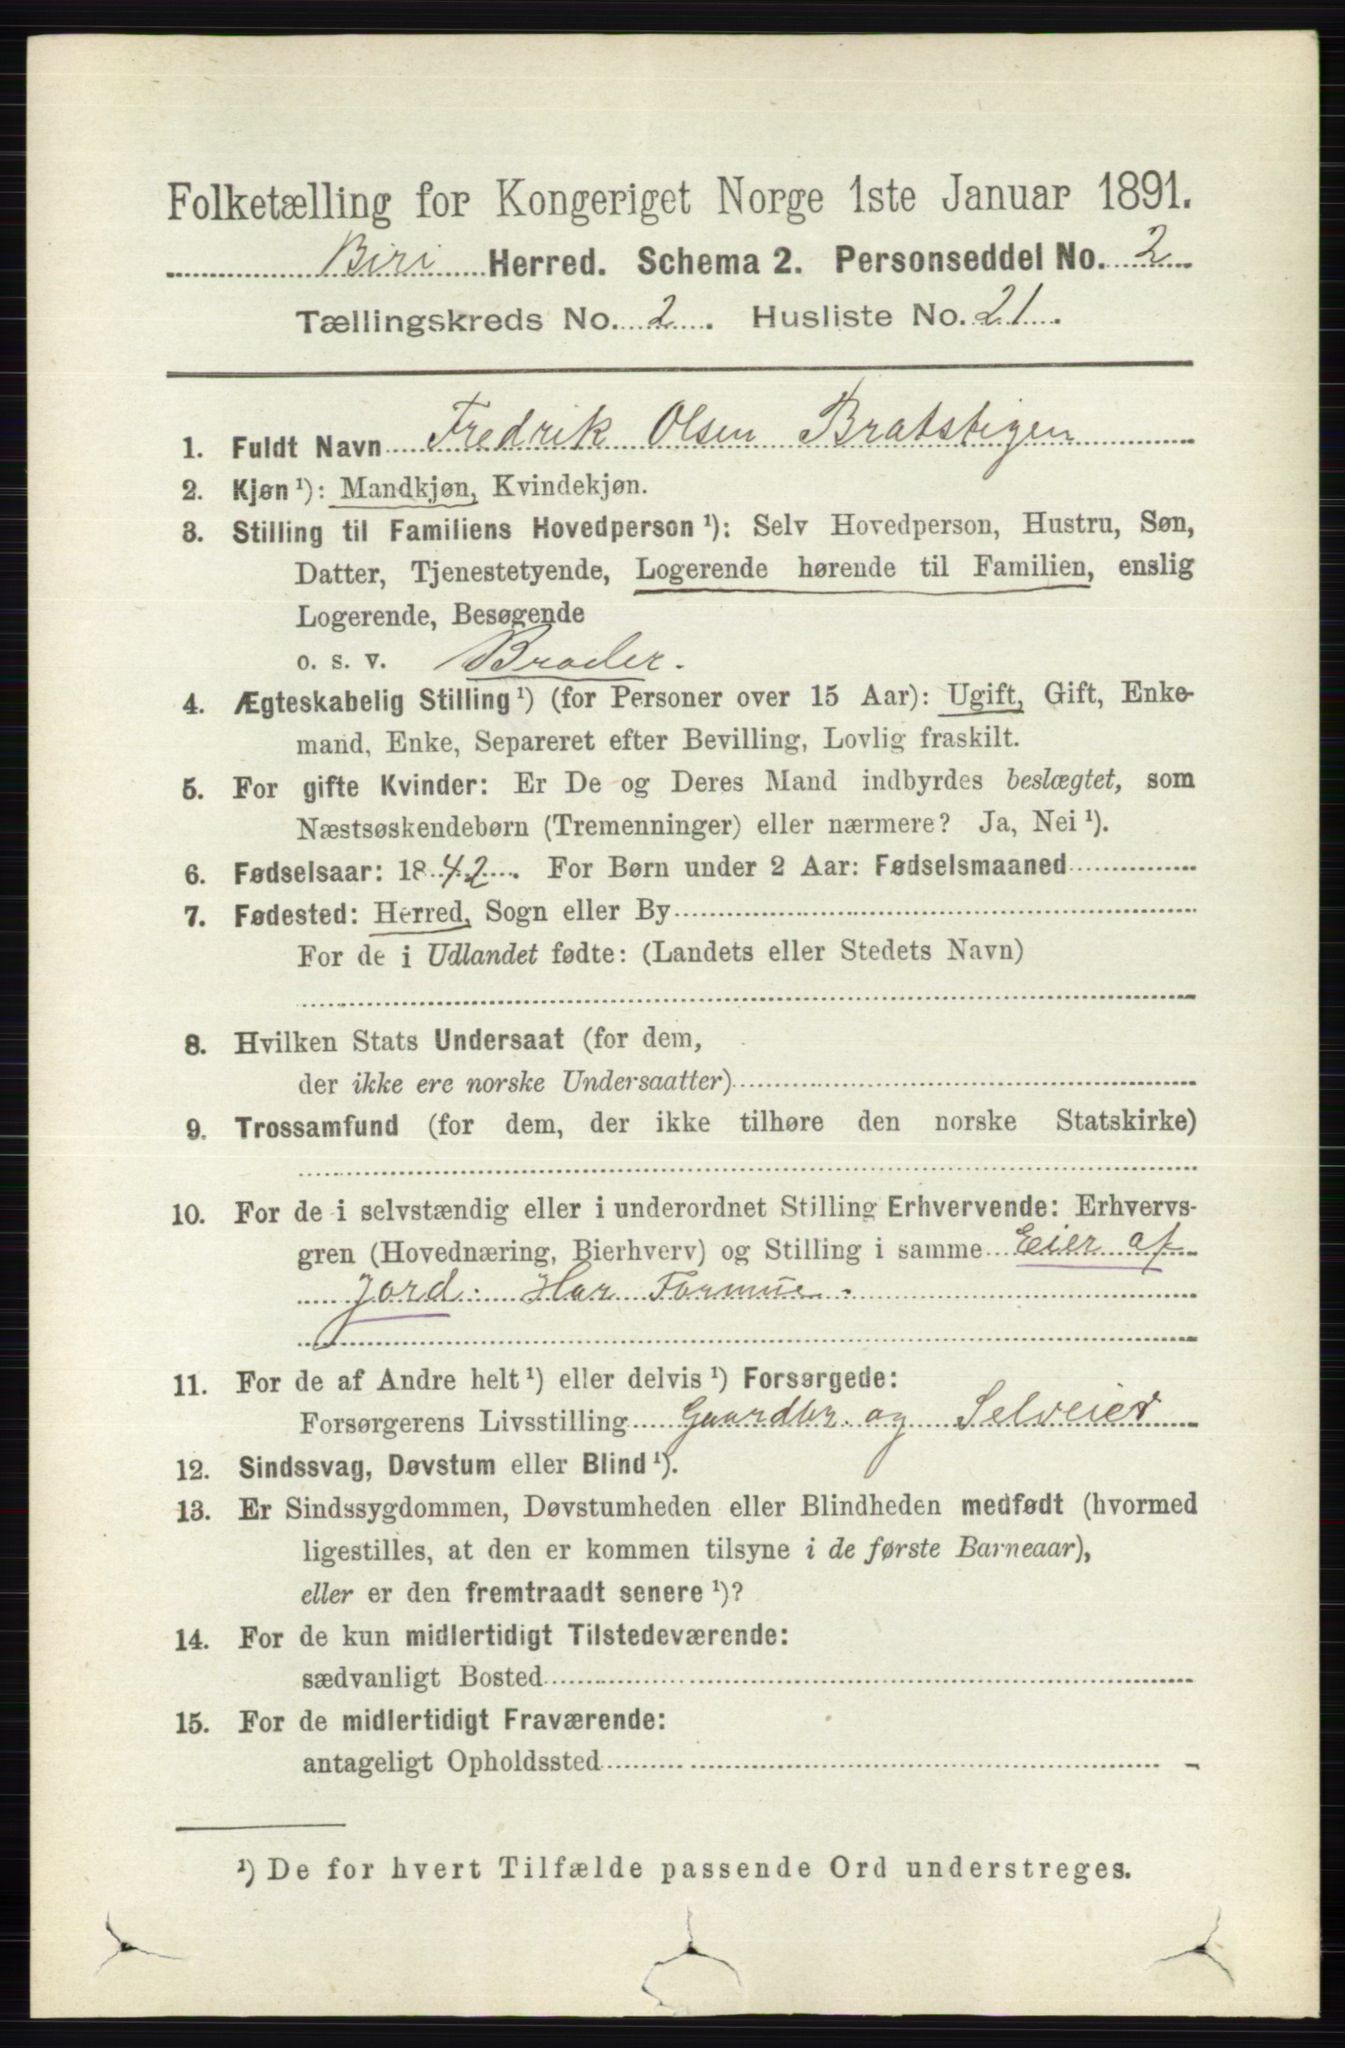 Folketælling for Kongeriget Norge 1ste Januar 1891.
Biri Herred. Schema 2. Personseddel No. 2
Tællingskreds No. 2. Husliste No. 21.
1. Fuldt Navn Fredrik Olsen Bratstigen
2. Kjøn ¹): Mandkjøn, Kvindekjøn.
3. Stilling til Familiens Hovedperson ¹): Selv Hovedperson, Hustru, Søn,
Datter, Tjenestetyende, Logerende hørende til Familien, enslig
Logerende, Besøgende
o. s. v. Broder.
4. Ægteskabelig Stilling ¹) (for Personer over 15 Aar): Ugift, Gift, Enke-
mand, Enke, Separeret efter Bevilling, Lovlig fraskilt.
5. For gifte Kvinder: Er De og Deres Mand indbyrdes beslægtet, som
Næstsøskendebørn (Tremenninger) eller nærmere? Ja, Nei ¹).
6. Fødselsaar: 1842. For Børn under 2 Aar: Fødselsmaaned
7. Fødested: Herred, Sogn eller By
For de i Udlandet fødte: (Landets eller Stedets Navn)
8. Hvilken Stats Undersaat (for dem,
der ikke ere norske Undersaatter)
9. Trossamfund (for dem, der ikke tilhøre den norske Statskirke)
10. For de i selvstændig eller i underordnet Stilling Erhvervende: Erhvervs-
gren (Hovednæring, Bierhverv) og Stilling i samme Eier af
Jord. Har Formue.
11. For de af Andre helt ¹) eller delvis ¹) Forsørgede:
Forsørgerens Livsstilling Gaardbr. og Selveier
12. Sindssvag, Døvstum eller Blind ¹).
13. Er Sindssygdommen, Døvstumheden eller Blindheden medfødt (hvormed
ligestilles, at den er kommen tilsyne i de første Barneaar),
eller er den fremtraadt senere ¹)?
14. For de kun midlertidigt Tilstedeværende:
sædvanligt Bosted
15. For de midlertidigt Fraværende:
antageligt Opholdssted
¹) De for hvert Tilfælde passende Ord understreges.